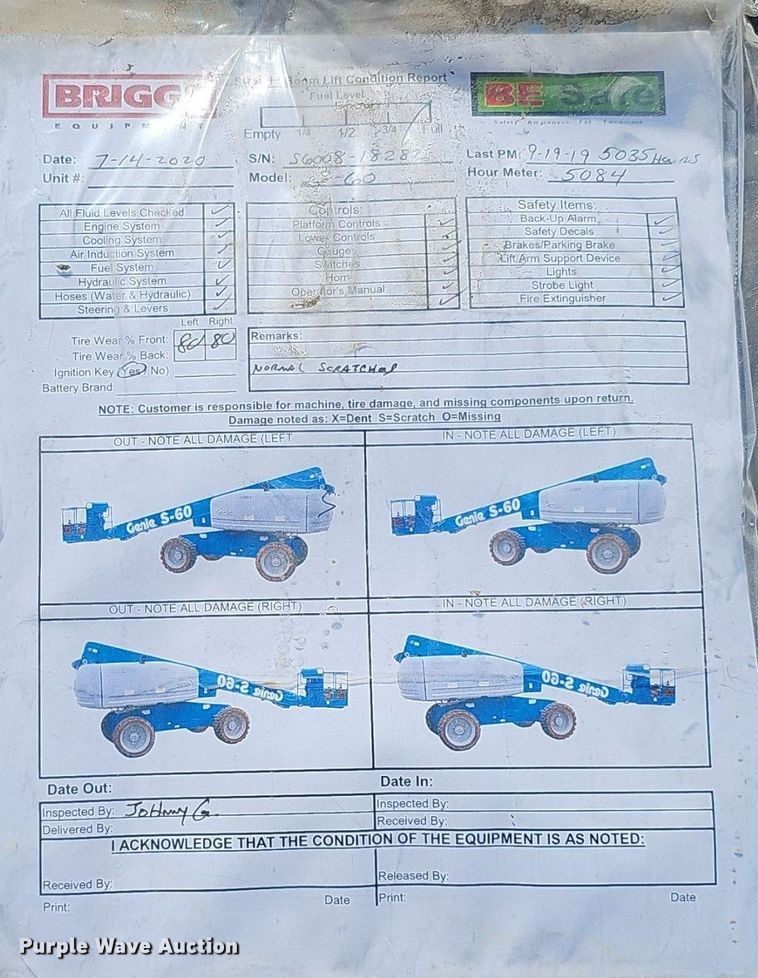 BRIGGS
EQUIPMENT
Boom Lift Condition Report
Fuel Level
Empty 1/4 1/2 3/4 Full
BE Safe
Safety Awareness For Equipment
Date: 7-14-2020
S/N: S6008-1828
Last PM: 9-19-19 5035 Hours
Unit #:
Model: -60
Hour Meter: 5084
All Fluid Levels Checked ✓
Engine System ✓
Cooling System ✓
Air Induction System ✓
Fuel System ✓
Hydraulic System ✓
Hoses (Water & Hydraulic) ✓
Steering & Levers ✓
Controls:
Platform Controls ✓
Lower Controls ✓
Gauges ✓
Switches ✓
Horn ✓
Operator's Manual ✓
Safety Items:
Back-Up Alarm ✓
Safety Decals ✓
Brakes/Parking Brake ✓
Lift Arm Support Device ✓
Lights ✓
Strobe Light ✓
Fire Extinguisher ✓
Left Right
Tire Wear % Front: 80 80
Tire Wear % Back:
Ignition Key (Yes/No)
Battery Brand:
Remarks:
NORMAL SCRATCHES
NOTE: Customer is responsible for machine, tire damage, and missing components upon return.
Damage noted as: X=Dent S=Scratch O=Missing
OUT - NOTE ALL DAMAGE (LEFT
IN - NOTE ALL DAMAGE (LEFT)
Genie S-60
Genie
Genie S-60
OUT - NOTE ALL DAMAGE (RIGHT)
IN - NOTE ALL DAMAGE (RIGHT)
Genie S-60
Genie S-60
Date Out:
Date In:
Inspected By: JOHNNY G.
Inspected By:
Delivered By:
Received By:
I ACKNOWLEDGE THAT THE CONDITION OF THE EQUIPMENT IS AS NOTED:
Received By:
Released By:
Print: Date
Print: Date
Purple Wave Auction